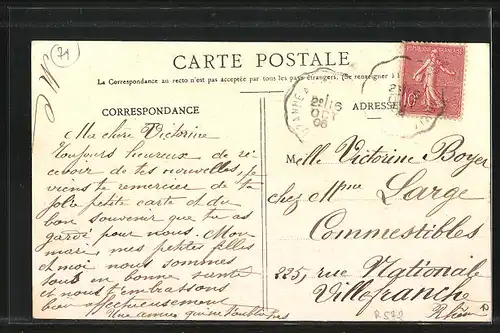 71
CARTE POSTALE
La Correspondance au recto n'est pas acceptée par tous les pays étrangers. (Se renseigner à l
RÉPUBLIQUE FRANÇAISE
10
CORRESPONDANCE
ADRESSE
OCT
06
Ma chère Victorine
Toujours heureux de re-
cevoir de tes nouvelles, je
viens te remercier de ta
jolie petite carte et du
bon souvenir que tu as
gardé pour nous. Mon
mari, mes petites filles
et moi nous sommes
tous en bonne santé
et nous t'embrassons
bien affectueusement
Une amie qui ne t'oublie pas
Melle Victorine Boyer
chez Mme Large
Commestibles
225, rue Nationale
Villefranche
Rhône
R572